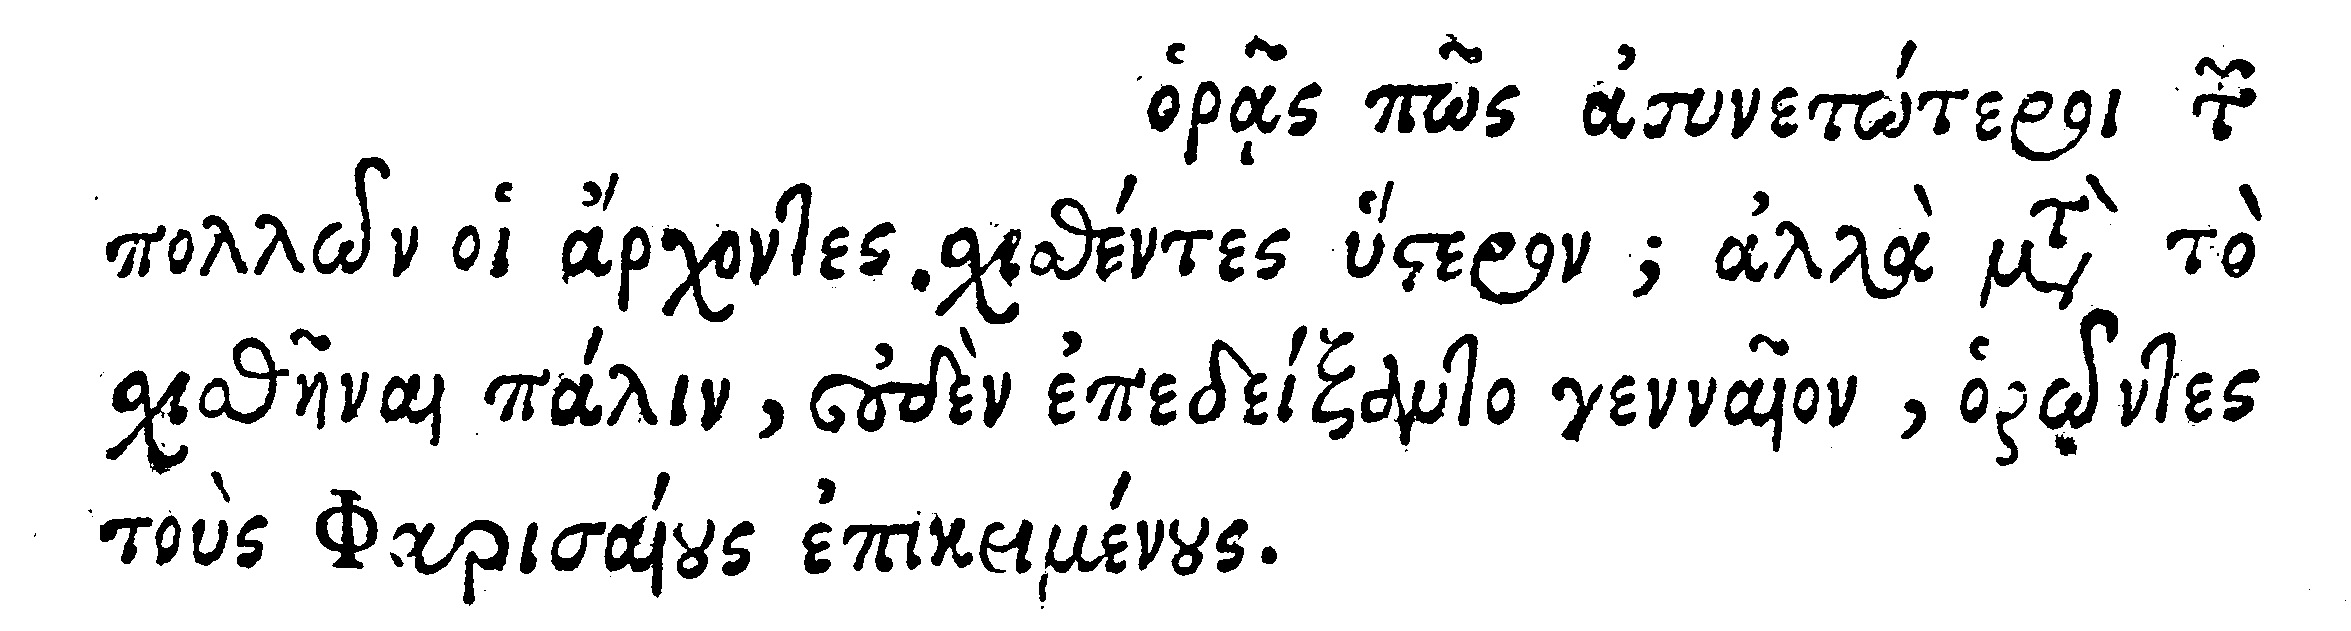 ὁρᾷς πῶς ἀσυνετώτεροι τῶν
πολλῶν οἱ ἄρχοντες. σχισθέντες ὕστερον; ἀλλὰ μετὰ τὸ
σχισθῆναι πάλιν, οὐδὲν ἐπεδείξαντο γενναῖον, ὁρῶντες
τοὺς Φαρισαίους ἐπικειμένους.